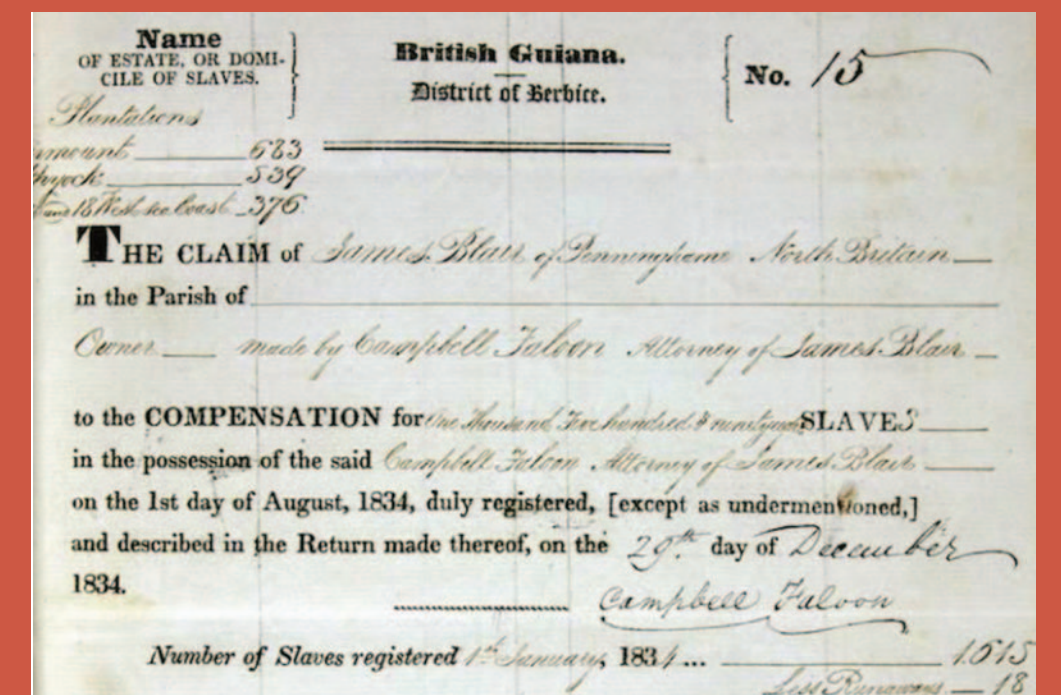 Name
OF ESTATE, OR DOMI-
CILE OF SLAVES.
British Guiana.
District of Berbice.
No. 15
Plantations
683
539
18 West sea Coast 376
THE CLAIM of James Blair of Penninghame North Britain
in the Parish of
Owner made by Campbell Faloon Attorney of James Blair
to the COMPENSATION for One Thousand Five hundred & SLAVES
in the possession of the said Campbell Faloon Attorney of James Blair
on the 1st day of August, 1834, duly registered, [except as undermentioned,]
and described in the Return made thereof, on the 29th day of December
1834.
Campbell Faloon
Number of Slaves registered January, 1834 ... 1615
Less Runaways 18